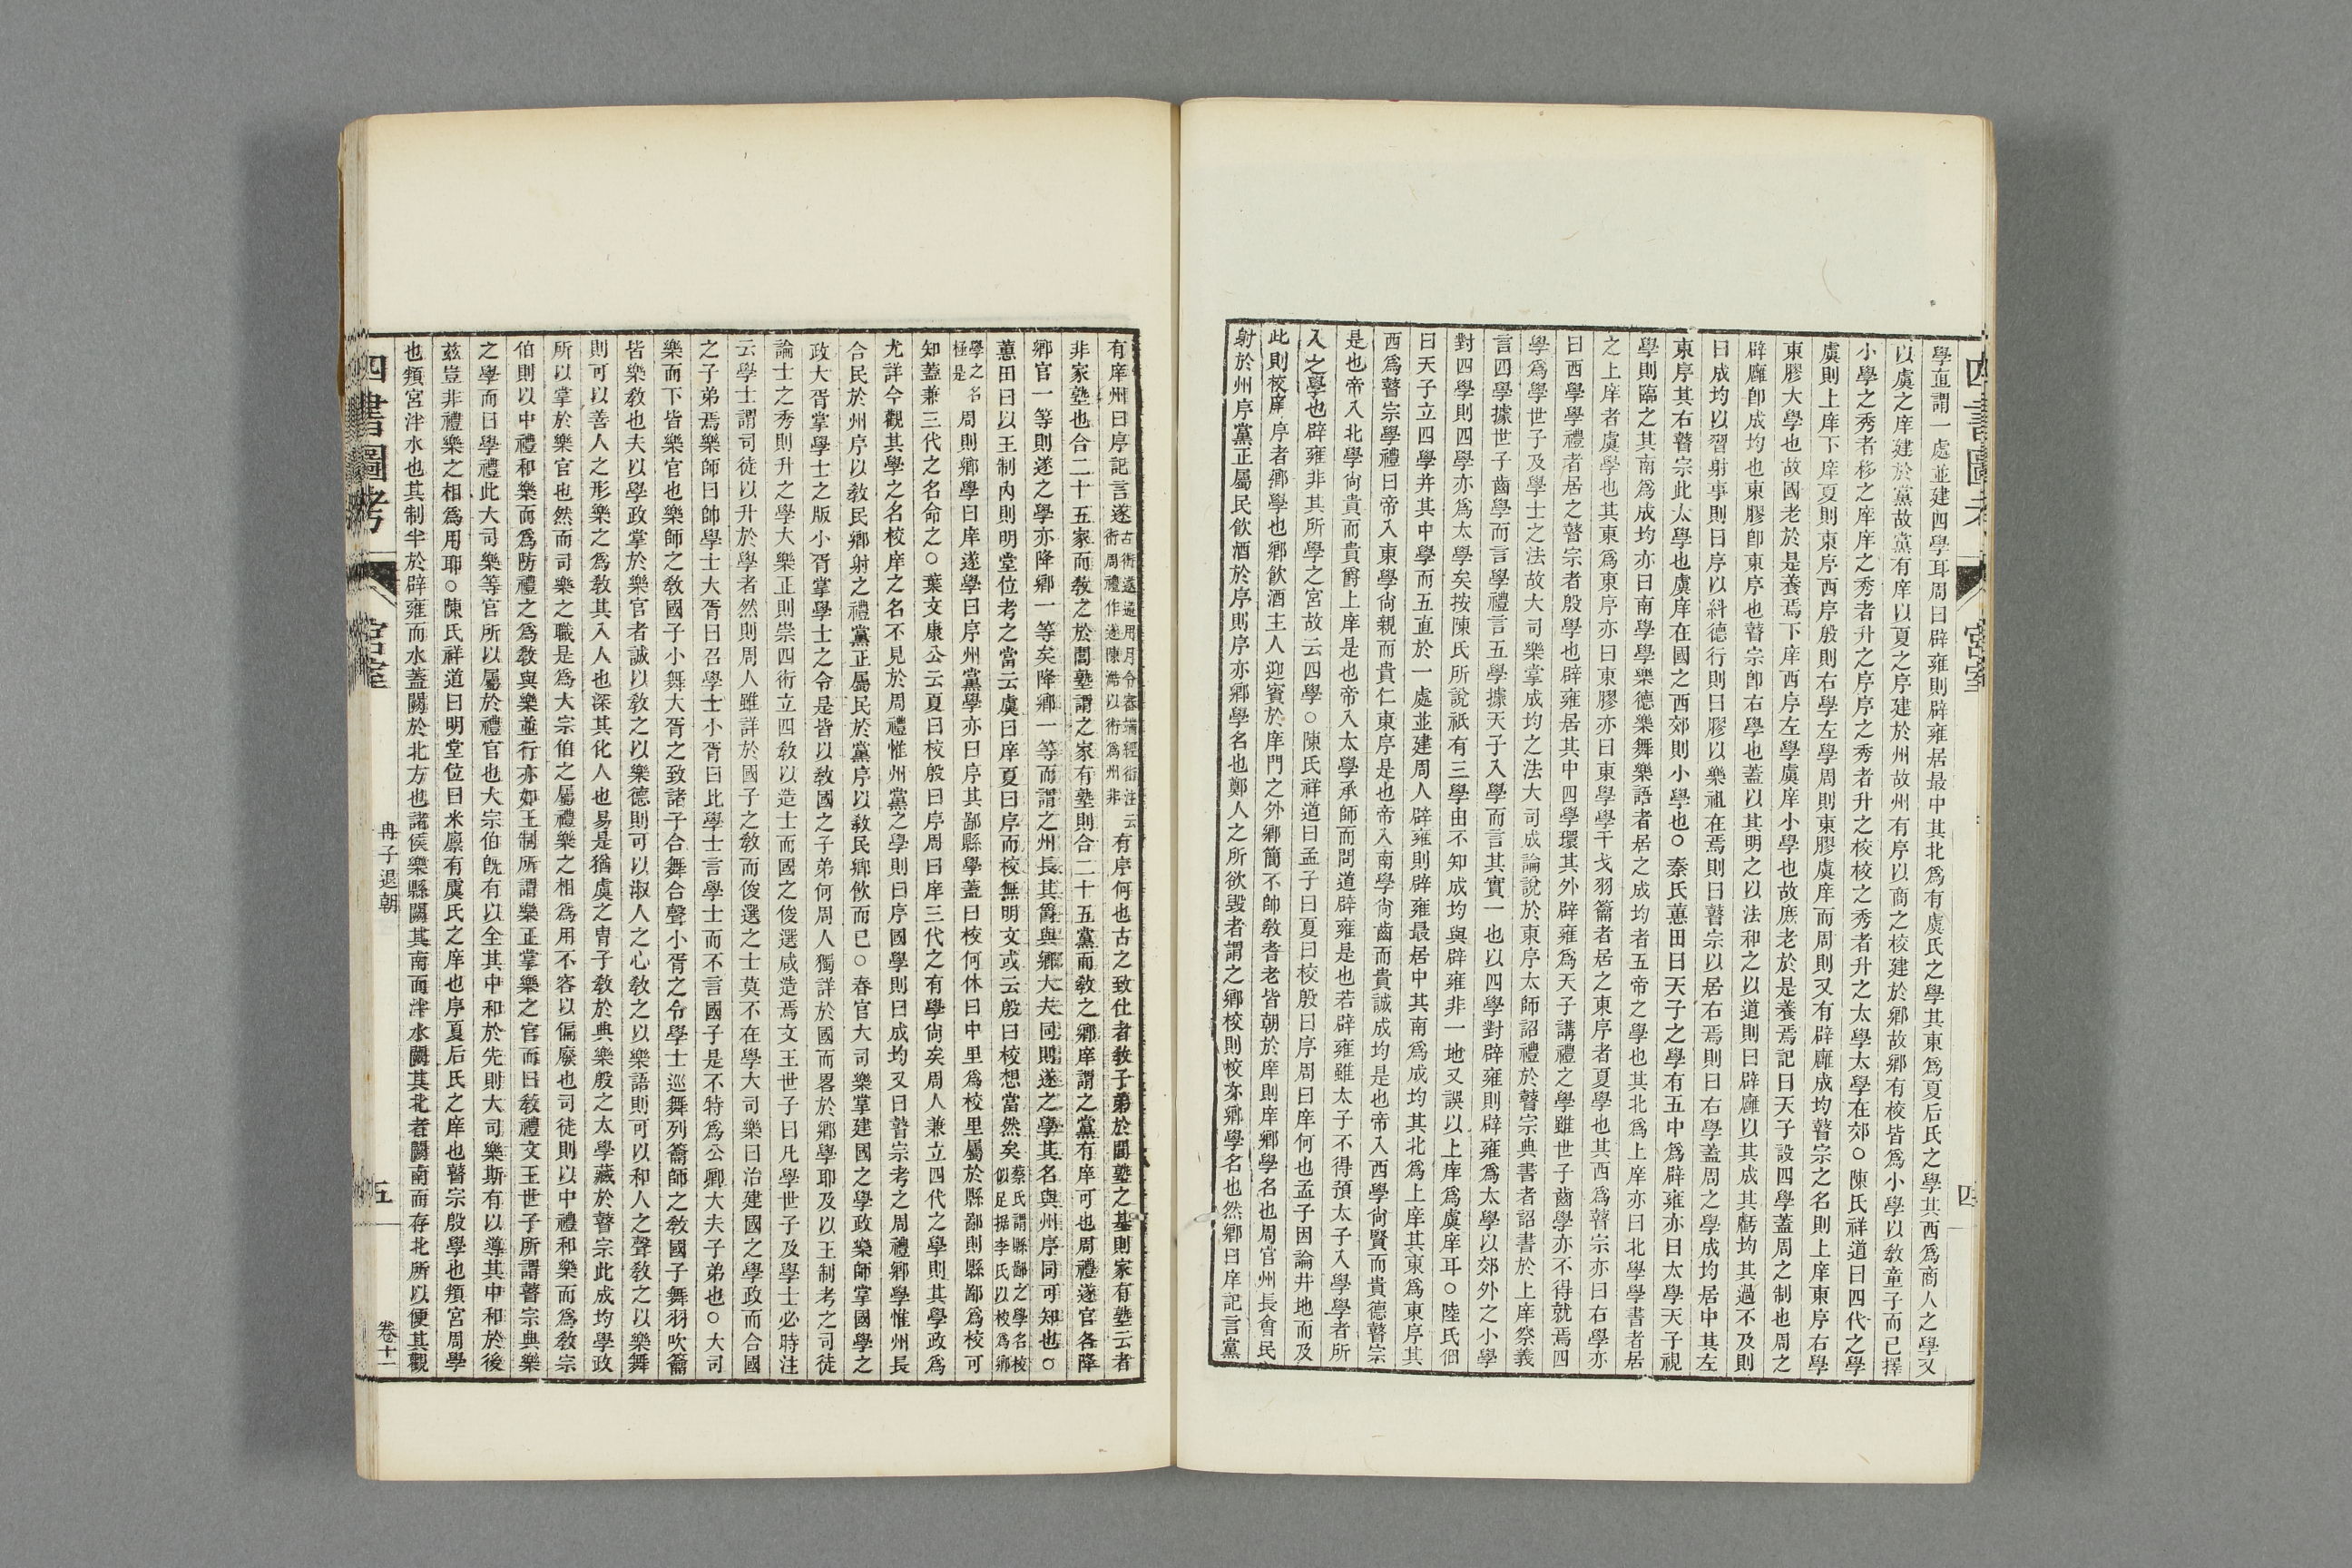 四書圖考
宮室
四
學直謂一處並建四學耳周曰辟雍則辟雍居最中其北爲有虞氏之學其東爲夏后氏之學其西爲商人之學又
以虞之庠建於黨故黨有庠以夏之序建於州故州有序以商之校建於鄉故鄉有校皆爲小學以敎童子而已擇
小學之秀者移之庠庠之秀者升之序序之秀者升之校校之秀者升之太學太學在郊○陳氏祥道曰四代之學
虞則上庠下庠夏則東序西序殷則右學左學周則東膠虞庠而周則又有辟廱成均瞽宗之名則上庠東序右學
東膠大學也故國老於是養焉下庠西序左學虞庠小學也故庶老於是養焉記曰天子設四學蓋周之制也周之
辟廱卽成均也東膠卽東序也瞽宗卽右學也蓋以其明之以法和之以道則曰辟廱以其成其虧均其過不及則
曰成均以習射事則曰序以糾德行則曰膠以樂祖在焉則曰瞽宗以居右焉則曰右學蓋周之學成均居中其左
東序其右瞽宗此太學也虞庠在國之西郊則小學也○秦氏蕙田曰天子之學有五中爲辟雍亦曰太學天子視
學則臨之其南爲成均亦曰南學學樂德樂舞樂語者居之成均者五帝之學也其北爲上庠亦曰北學學書者居
之上庠者虞學也其東爲東序亦曰東膠亦曰東學學干戈羽籥者居之東序者夏學也其西爲瞽宗亦曰右學亦
曰西學學禮者居之瞽宗者殷學也辟雍居其中四學環其外辟雍爲天子講禮之學雖世子齒學亦不得就焉四
學爲學世子及學士之法故大司樂掌成均之法大司成論說於東序太師詔禮於瞽宗典書者詔書於上庠祭義
言四學據世子齒學而言學禮言五學據天子入學而言其實一也以四學對辟雍則辟雍爲太學以郊外之小學
對四學則四學亦爲太學矣按陳氏所說祇有三學由不知成均與辟雍非一地又誤以上庠爲虞庠耳○陸氏佃
曰天子立四學并其中學而五直於一處並建周人辟雍則辟雍最居中其南爲成均其北爲上庠其東爲東序其
西爲瞽宗學禮曰帝入東學尙親而貴仁東序是也帝入南學尙齒而貴誠成均是也帝入西學尙賢而貴德瞽宗
是也帝入北學尙貴而貴爵上庠是也帝入太學承師而問道辟雍是也若辟雍雖太子不得預太子入學學者所
入之學也辟雍非其所學之宮故云四學○陳氏祥道曰孟子曰夏曰校殷曰序周曰庠何也孟子因論井地而及
此則校庠序者鄉學也鄉飮酒主人迎賓於庠門之外鄉簡不帥敎耆老皆朝於庠則庠鄉學名也周官州長會民
射於州序黨正屬民飮酒於序則序亦鄉學名也鄭人之所欲毀者謂之鄉校則校亦鄉學名也然鄉曰庠記言黨
有庠州曰序記言遂古術遂通用月令審端經術注云術周禮作遂陳澔以術爲州非有序何也古之致仕者敎子弟於閭塾之基則家有塾云者
非家塾也合二十五家而敎之於閭塾謂之家有塾則合二十五黨而敎之鄉庠謂之黨有庠可也周禮遂官各降
鄉官一等則遂之學亦降鄉一等矣降鄉一等而謂之州長其爵與鄉大夫同則遂之學其名與州序同可知也○
蕙田曰以王制內則明堂位考之當云虞曰庠夏曰序而校無明文或云殷曰校想當然矣蔡氏謂縣鄙之學名校似足据李氏以校爲鄉
學之名極是周則鄉學曰庠遂學曰序州黨學亦曰序其鄙縣學蓋曰校何休曰中里爲校里屬於縣鄙則縣鄙爲校可
知蓋兼三代之名命之○葉文康公云夏曰校殷曰序周曰庠三代之有學尙矣周人兼立四代之學則其學政爲
尤詳今觀其學之名校庠之名不見於周禮惟州黨之學則曰序國學則曰成均又曰瞽宗考之周禮鄉學惟州長
合民於州序以敎民鄉射之禮黨正屬民於黨序以敎民鄉飮而已○春官大司樂掌建國之學政樂師掌國學之
政大胥掌學士之版小胥掌學士之令是皆以敎國之子弟何周人獨詳於國而畧於鄉學耶及以王制考之司徒
論士之秀則升之學大樂正則崇四術立四敎以造士而國之俊選咸造焉文王世子曰凡學世子及學士必時注
云學士謂司徒以升於學者然則周人雖詳於國子之敎而俊選之士莫不在學大司樂曰治建國之學政而合國
之子弟焉樂師曰帥學士大胥曰召學士小胥曰比學士言學士而不言國子是不特爲公卿大夫子弟也○大司
樂而下皆樂官也樂師之敎國子小舞大胥之致諸子合舞合聲小胥之令學士巡舞列籥師之敎國子舞羽吹籥
皆樂敎也夫以學政掌於樂官者誠以敎之以樂德則可以淑人之心敎之以樂語則可以和人之聲敎之以樂舞
則可以善人之形樂之爲敎其入人也深其化人也易是猶虞之冑子敎於典樂殷之太學藏於瞽宗此成均學政
所以掌於樂官也然而司樂之職是爲大宗伯之屬禮樂之相爲用不容以偏廢也司徒則以中禮和樂而爲敎宗
伯則以中禮和樂而爲防禮之爲敎與樂並行亦如王制所謂樂正掌樂之官而曰敎禮文王世子所謂瞽宗典樂
之學而曰學禮此大司樂等官所以屬於禮官也大宗伯旣有以全其中和於先則大司樂斯有以導其中和於後
茲豈非禮樂之相爲用耶○陳氏祥道曰明堂位曰米廩有虞氏之庠也序夏后氏之庠也瞽宗殷學也頖宮周學
也頖宮泮水也其制半於辟雍而水蓋闕於北方也諸侯樂縣闕其南面泮水闕其北者闕南而存北所以便其觀
四書圖考
宮室
冉子退朝
五
卷十一